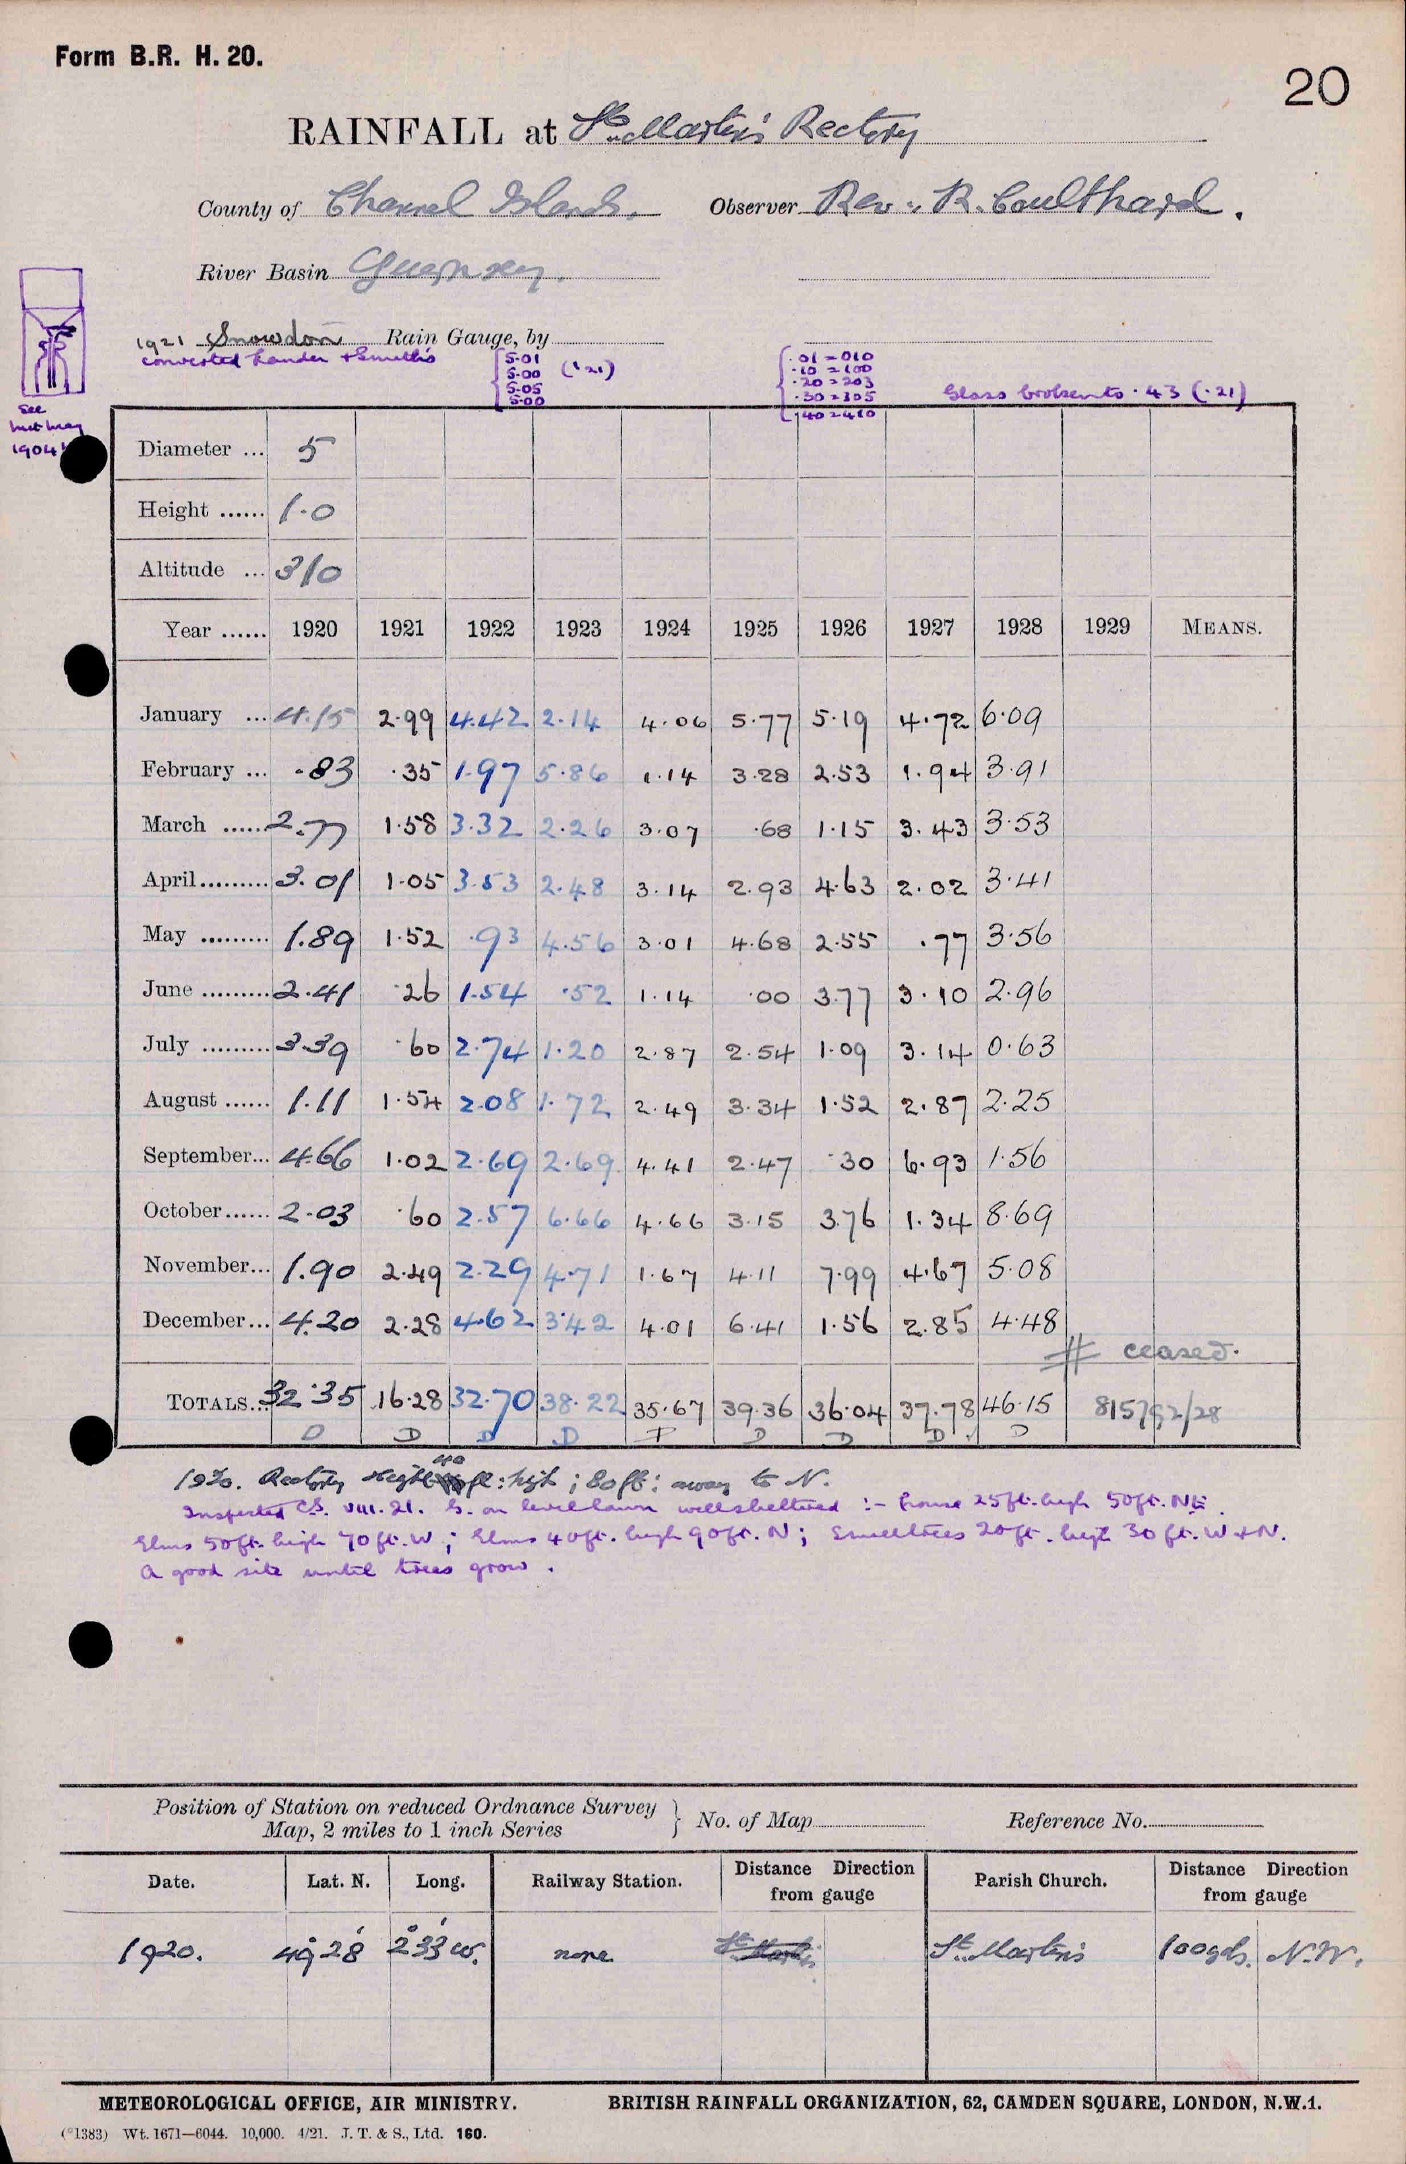 Form B.R. H. 20.
20
RAINFALL at St. Martin's Rectory
County of Channel Islands. Observer Rev. R. Coulthard.
River Basin Guernsey.
1921 Snowdon Rain Gauge, by
converted Lander & Smith's
5.01
5.00
5.05
5.00
('21)
.01 = 010
.10 = 100
.20 = 203
.30 = 305
.40 = 410
Glass broken to .43 ('21)
See
1904
Diameter ... 5
Height ...... 1.0
Altitude ... 310
Year ...... 1920 1921 1922 1923 1924 1925 1926 1927 1928 1929 MEANS.
January ... 4.15 2.99 4.42 2.14 4.06 5.77 5.19 4.72 6.09
February ... .83 .35 1.97 5.86 1.14 3.28 2.53 1.94 3.91
March ...... 2.77 1.58 3.32 2.26 3.07 .68 1.15 3.43 3.53
April......... 3.01 1.05 3.53 2.48 3.14 2.93 4.63 2.02 3.41
May ......... 1.89 1.52 .93 4.56 3.01 4.68 2.55 .77 3.56
June ......... 2.41 .26 1.54 .52 1.14 .00 3.77 3.10 2.96
July ......... 3.39 .60 2.74 1.20 2.87 2.54 1.09 3.14 0.63
August ...... 1.11 1.54 2.08 1.72 2.49 3.34 1.52 2.87 2.25
September... 4.66 1.02 2.69 2.69 4.41 2.47 .30 6.93 1.56
October...... 2.03 .60 2.57 6.66 4.66 3.15 3.76 1.34 8.69
November... 1.90 2.49 2.29 4.71 1.67 4.11 7.99 4.67 5.08
December... 4.20 2.28 4.62 3.42 4.01 6.41 1.56 2.85 4.48
# ceased.
TOTALS... 32.35 16.28 32.70 38.22 35.67 39.36 36.04 37.78 46.15 815792/28
D D D D P D D D D
1920. Rectory Height 40 ft: high; 80 ft: away to N.
Inspected C.S. VIII. 21. G. on level lawn well sheltered :- house 25ft. high 50ft. NE.
Elms 50ft. high 70ft. W; Elms 40ft. high 90ft. N; Small trees 20ft. high 30ft. W & N.
A good site until trees grow.
Position of Station on reduced Ordnance Survey Map, 2 miles to 1 inch Series } No. of Map Reference No.
Date. Lat. N. Long. Railway Station. Distance Direction from gauge Parish Church. Distance Direction from gauge
1920. 49° 28' 2° 33' W. none St. Martin's St. Martin's 100 yds. N.W.
METEOROLOGICAL OFFICE, AIR MINISTRY. BRITISH RAINFALL ORGANIZATION, 62, CAMDEN SQUARE, LONDON, N.W.1.
(*1383) Wt. 1671—6044. 10,000. 4/21. J. T. & S., Ltd. 160.